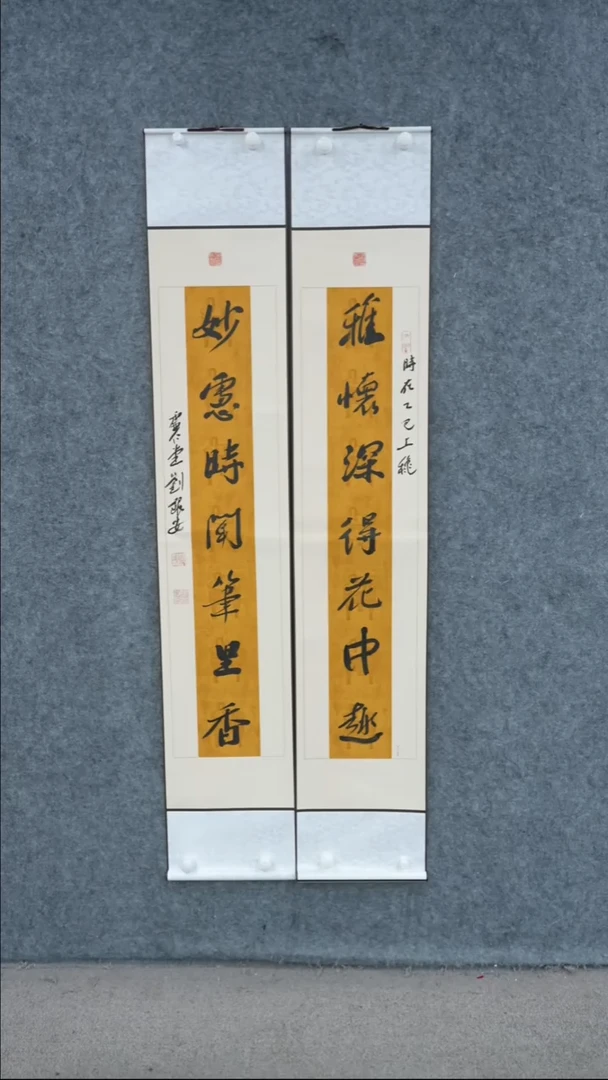 雅懷深得花中趣
時在乙巳上穐
妙慮時聞筆里香
堂劉